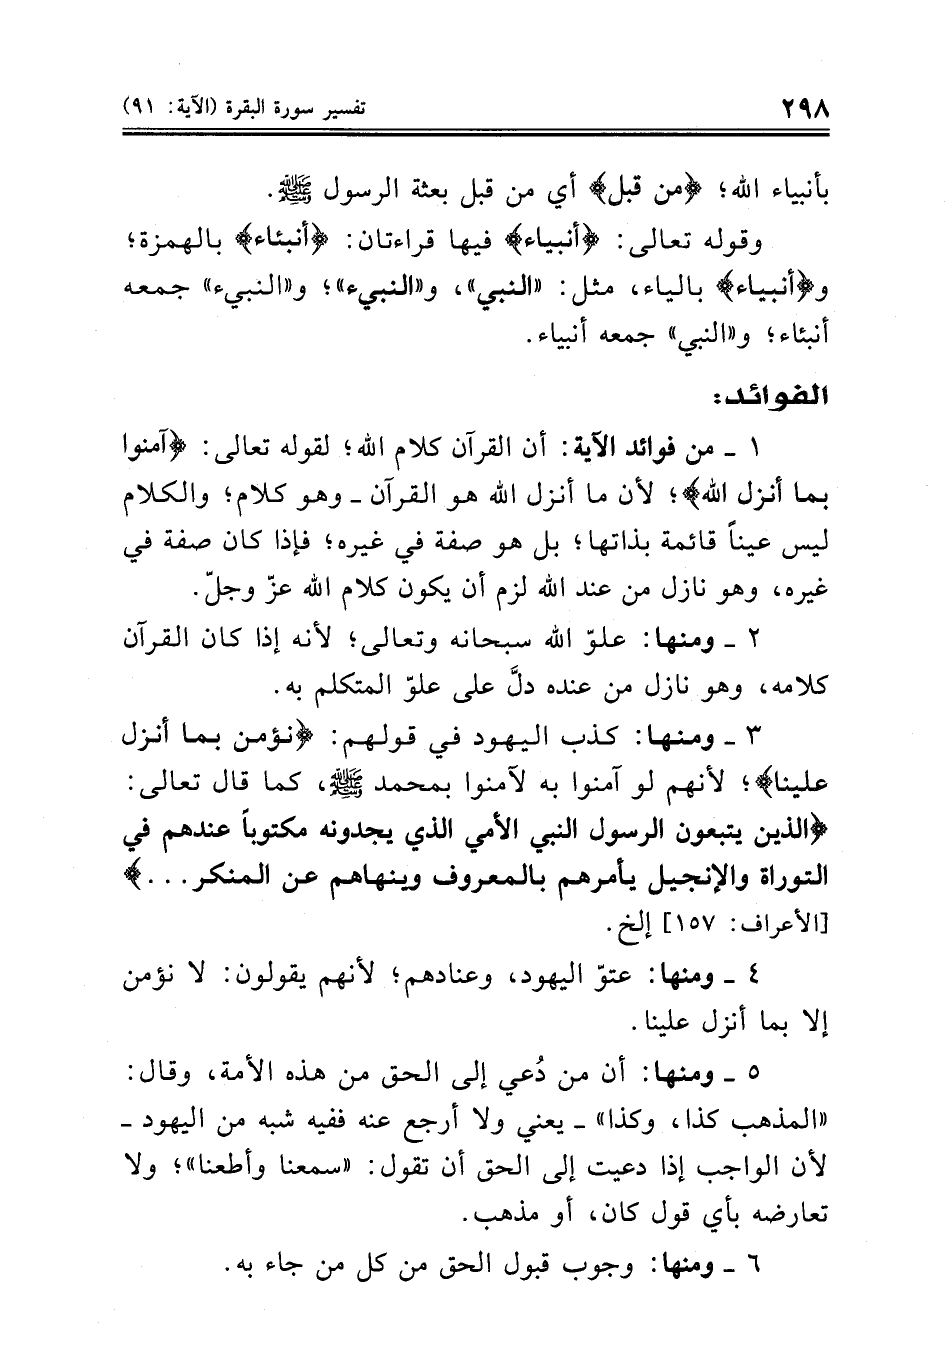 ٢٩٨
تفسير سورة البقرة (الآية: ٩١)
بأنبياء الله؛ ﴿من قبل﴾ أي من قبل بعثة الرسول ﷺ.
وقوله تعالى: ﴿أنبياء﴾ فيها قراءتان: ﴿أنبئاء﴾ بالهمزة؛
و﴿أنبياء﴾ بالياء، مثل: «النبي»، و«النبيء»؛ و«النبيء» جمعه
أنبئاء؛ و«النبي» جمعه أنبياء.
الفوائد:
١ ـ من فوائد الآية: أن القرآن كلام الله؛ لقوله تعالى: ﴿آمنوا
بما أنزل الله﴾؛ لأن ما أنزل الله هو القرآن ـ وهو كلام؛ والكلام
ليس عيناً قائمة بذاتها؛ بل هو صفة في غيره؛ فإذا كان صفة في
غيره، وهو نازل من عند الله لزم أن يكون كلام الله عزّ وجلّ.
٢ ـ ومنها: علوّ الله سبحانه وتعالى؛ لأنه إذا كان القرآن
كلامه، وهو نازل من عنده دلَّ على علوّ المتكلم به.
٣ ـ ومنها: كذب اليهود في قولهم: ﴿نؤمن بما أنزل
علينا﴾؛ لأنهم لو آمنوا به لآمنوا بمحمد ﷺ، كما قال تعالى:
﴿الذين يتبعون الرسول النبي الأمي الذي يجدونه مكتوباً عندهم في
التوراة والإنجيل يأمرهم بالمعروف وينهاهم عن المنكر...﴾
[الأعراف: ١٥٧] إلخ.
٤ ـ ومنها: عتوّ اليهود، وعنادهم؛ لأنهم يقولون: لا نؤمن
إلا بما أنزل علينا.
٥ ـ ومنها: أن من دُعي إلى الحق من هذه الأمة، وقال:
«المذهب كذا، وكذا» ـ يعني ولا أرجع عنه ففيه شبه من اليهود ـ
لأن الواجب إذا دعيت إلى الحق أن تقول: «سمعنا وأطعنا»؛ ولا
تعارضه بأي قول كان، أو مذهب.
٦ ـ ومنها: وجوب قبول الحق من كل من جاء به.